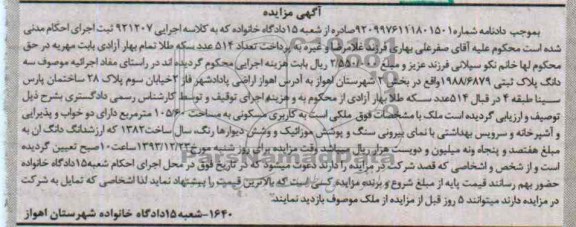 آگهی مزایده
بموجب دادنامه شماره ۹۲۰۹۹۷۶۱۱۱۸۰۱۵۰۱صادره از شعبه ۱۵دادگاه خانواده که به کلاسه اجرایی ۹۲۱۲۰۷ ثبت اجرای احکام مدنی
شده است محکوم علیه آقای صفرعلی بهاری فرزند غلامرضا و غیره به پرداخت تعداد ۵۱۴ عدد سکه طلا تمام بهار آزادی بابت مهریه در حق
محکوم لها خانم نکو سیلانی فرزند عزیز و مبلغ ریال بابت هزینه اجرایی محکوم گردیده اند در راستای مفاد اجرائیه موصوف سه
دانگ پلاک ثبتی ۱۹۸۸/۶۸۷۹واقع در بخش شهرستان اهواز به آدرس اهواز اراضی پادادشهر فاز ۲خیابان سوم پلاک ۲۸ ساختمان پارس
سینا طبقه ۴ در قبال ۵۱۴عدد سکه طلا بهار آزادی از محکوم به و هزینه اجرای توقیف و توسط کارشناس رسمی دادگستری بشرح ذیل
توصیف و ارزیابی گردیده است ملک با مشخصات فوق ملکی است به کاربری مسکونی به مساحت ۱۰۵/۶۰ مترمربع دارای دو خواب و پذیرایی
و آشپزخانه و سرویس بهداشتی با نمای بیرونی سنگ و پوشش موزائیک و وشش دیوارها رنگ، سال ساخت۱۳۸۲ که ارزششدانگ دانگ ان به
مبلغ هفتصد و پنجاه ونه میلیون و دویست هزار ریال میباشد وقت مزایده برای روز شنبه مورخ ۱۳۹۳/۱۲/۲ساعت ۱۰صبح تعیین گردیده
است و از شخص و اشخاصی که قصد شرکت در مزایده را دارند دعوت میشود که در تاریخ فوق در محل اجرای احکام شعبه۱۵دادگاه خانواده
حضور بهم رسانند قیمت پایه از مبلغ شروع و برنده مزایده کسی است که بالاترین قیمت را پیشنهاد نماید لذا اشخاصی که تمایل به شرکت
در مزایده دارند میتوانند ۵ روز قبل از مزایده از ملک موصوف بازدید نمایند
۱۶۴۰-شعبه ۱۵دادگاه خانواده شهرستان اهواز